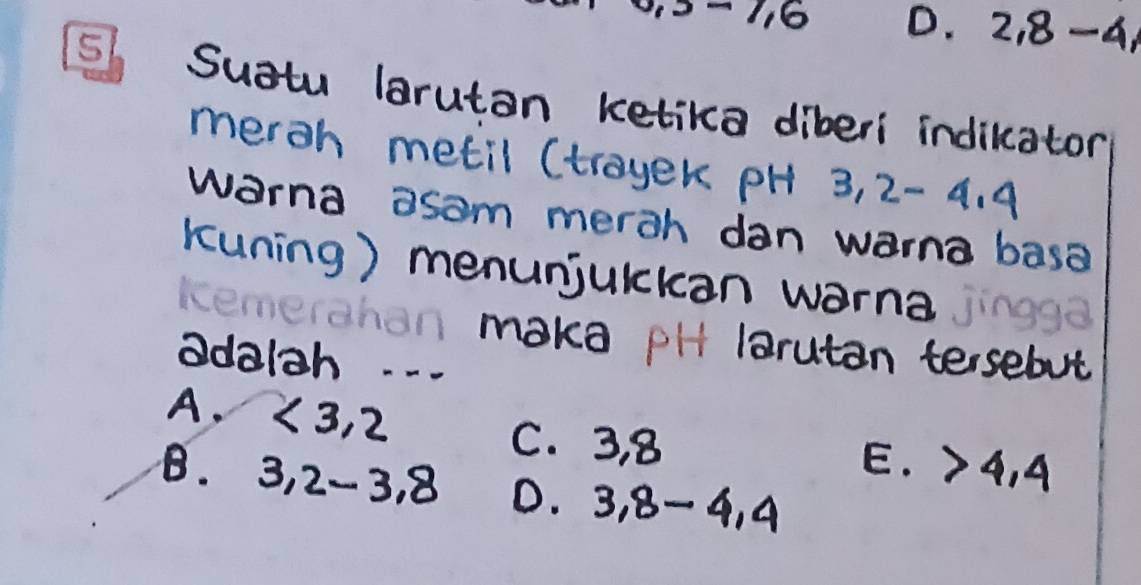 D. 2,8 - 4,
5 Suatu larutan ketika diberi indikator
merah metil (trayek pH 3,2 - 4,4
warna asam merah dan warna basa
kuning) menunjukkan warna jingga
kemerahan maka pH larutan tersebut
adalah ...
A. < 3,2
B. 3,2 - 3,8
C. 3,8
D. 3,8 - 4,4
E. > 4,4